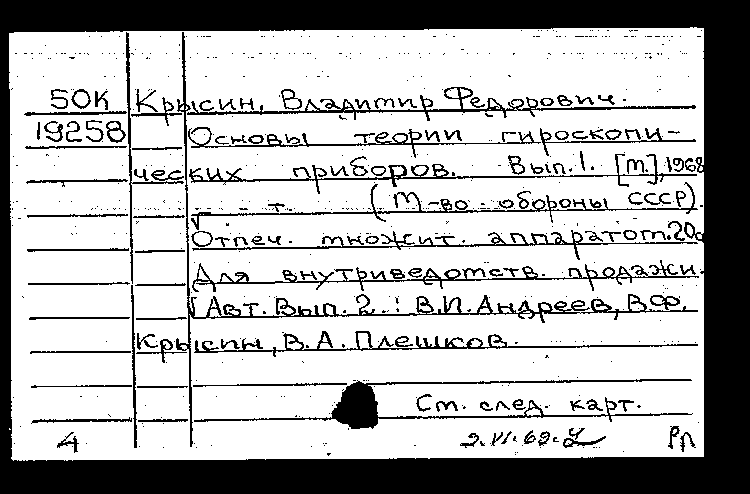 50К Крысин, Владимир Федорович.
19258 Основы теории гироскопи-
ческих приборов. Вып. 1. [М.], 1968
- - т. (М-во обороны СССР).
Отпеч. множит. аппаратом. 200
Для внутриведомств. продажи.
Авт. Вып. 2.: В.И. Андреев, В.Ф.
Крысин, В.А. Плешков.
См. след. карт.
4 2.VI.69. РЛ